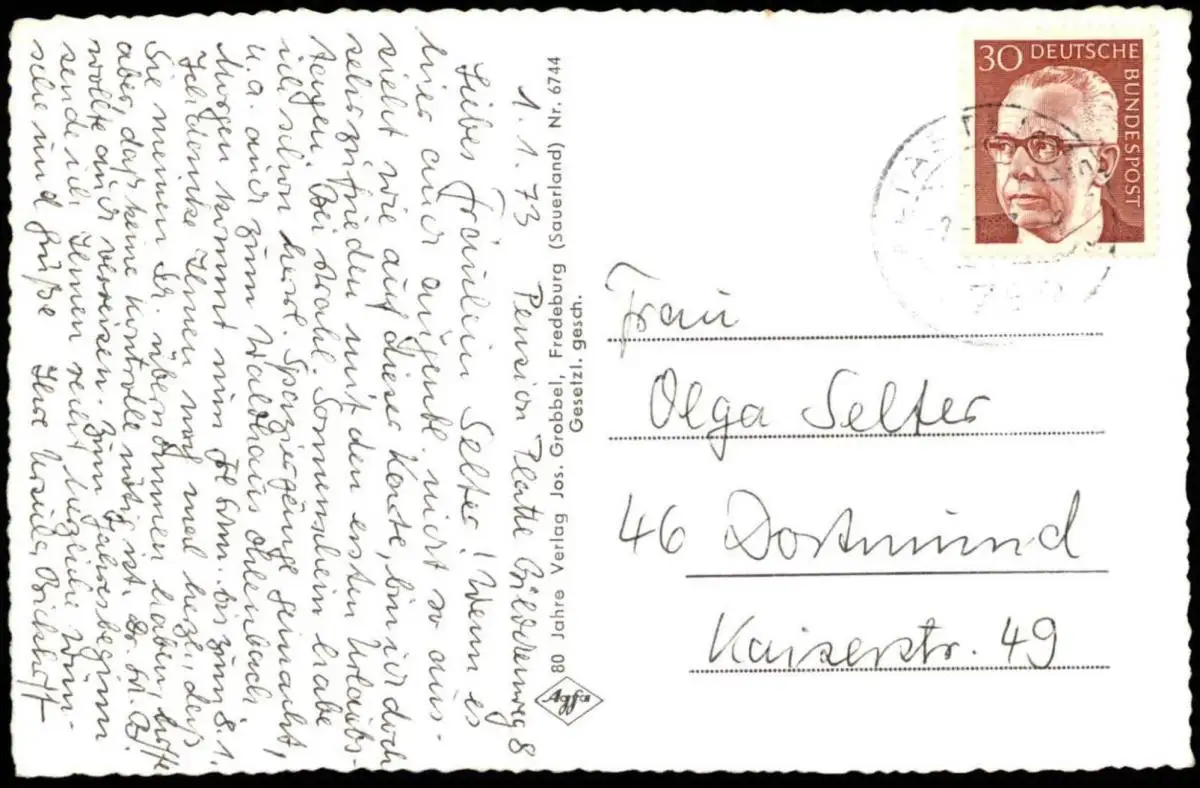 1. 1. 73 Pension Platte Bilderweg 8
Liebes Fräulein Selter! Wenn es
hier auch augenbl. nicht so aus-
sieht wie auf dieser Karte, bin ich doch
sehr zufrieden mit den ersten Urlaubs-
tagen. Bei strahl. Sonnenschein habe
ich schon herrl. Spaziergänge gemacht,
u.a. auch zum Waldhaus Ohlenbach
Morgen kommt nun bis zum 8. 1.
Ich danke Ihnen noch mal herzl., daß
Sie meinen Dr. übernommen haben, hoffe
aber, daß keine Kontrolle nötig ist. Dr.
wollte auch verreisen. Zum Jahresbeginn
sende ich Ihnen recht herzliche Wün-
sche und Grüße Ihre Ursula
80 Jahre Verlag Jos. Grobbel, Fredeburg (Sauerland) Nr. 6744
Gesetzl. gesch.
Agfa
30 DEUTSCHE BUNDESPOST
Frau
Olga Selter
46 Dortmund
Kaiserstr. 49